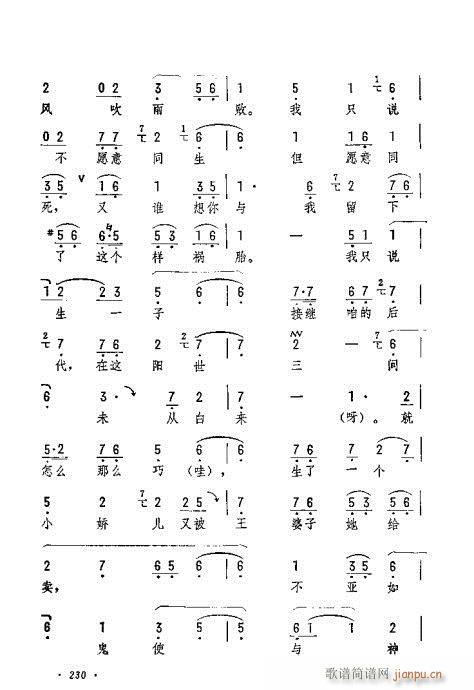 2 0 2 3 5 6 | 1 5 1 6
风 吹 雨 败。 我 只 说
0 2 7 7 7 2 6 | 6 1 1 6 | 6
不 愿意 同 生 但 愿意 同
3 5 V 1 6 1 3 5 | 1· 6 7 2 7 6
死, 又 谁 想你 与 我 留 下
#5 6 6·5 5 3 1 6 | 1 — 5 1 1
了 这个 样 祸 胎。 我只 说
1 2 2 3 5 6 | 6 7·7 6 7 2 7
生 一 子 接继 咱的 后
2 7 7 6 2 2 | 7 7 6 6
代, 在这 阳 世 三 间
6 3· 7 | 7 — 1· 2
未 从 白 来 (呀)。 就
5·2 7 6 5 6 | 6 7 6 7 2 7
怎么 那么 巧 (哇), 生了 一 个
5 2 7 2 2 5 | 7 7 6 5 6
小 娇 儿 又被 王 婆子 她 给
2 7 6 5 5 | 6 — 3 5 6
卖, 不 亚 如
6 7 3 5 | 5 6 1 1 2
鬼 使 与 神
· 230 ·
歌谱简谱网
jianpu.cn